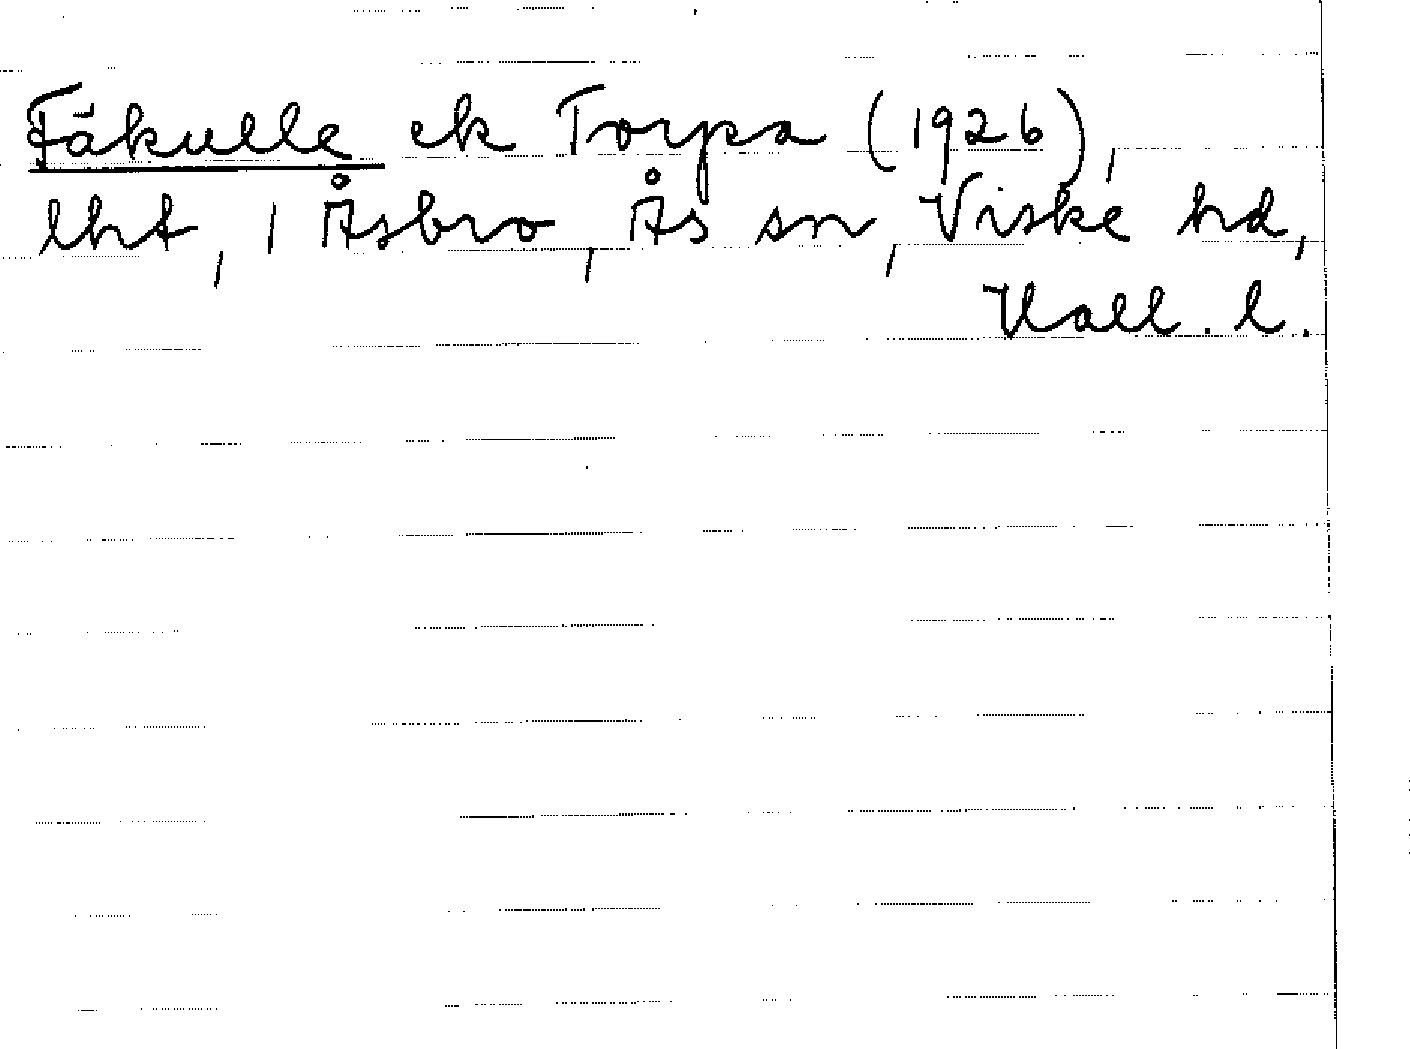 Fäkulle ek Torpa (1926),
lht, i Åsbro, Ås sn, Viske hd,
Hall. l.